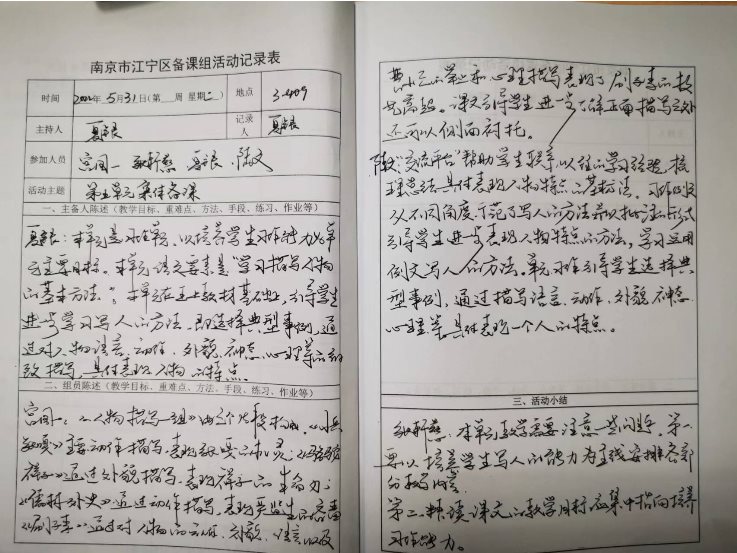 南京市江宁区备课组活动记录表
时间 2022年5月31日(第 周 星期二) 地点 3-409
主持人 夏 银 记录人 夏 银
参加人员 宫同一 耿新慈 夏 银 陆文
活动主题 第五单元集体备课
一、主备人陈述(教学目标、重难点、方法、手段、练习、作业等)
夏 银:本单元是习作单元,以培养学生习作能力为单
元主要目标。本单元语文要素是“学习描写人物
的基本方法”。本单元在五上教材基础上,引导学生
进一步学习写人的方法,即选择典型事例,通
过对人物语言、动作、外貌、神态、心理等的细
致描写,具体表现人物的特点。
二、组员陈述(教学目标、重难点、方法、手段、练习、作业等)
宫同一:《人物描写一组》由 个片段构成,《小兵
张嘎》主要动作描写,表现 嘎 ;《骆驼
祥子》通过外貌描写,表现祥子的生命力;
《儒林外史》通过动作描写,表现严监生的吝啬
《刷子李》通过对人物的动作、外貌、语言以及
曹小三的 和心理描写表现了刷子李的技
艺高超。课文引导学生进一步了解正面描写之外
还可以侧面衬托。
陆文:“交流平台”帮助学生 以往的学习经验,梳
理总结具体表现人物特点的基本方法。习作例文
从不同角度示范了写人的方法并以批注形式
引导学生进一步表现人物特点的方法。学习运用
例文写人的方法。单元习作引导学生选择典
型事例,通过描写语言、动作、外貌、神态、
心理等,具体表现一个人的特点。
三、活动小结
耿新慈:本单元教学需要注意一些问题,第一
要以培养学生写人的能力为主线安排各部
分教学内容。
第二、精读课文的教学目标应集中指向培养
习作能力。